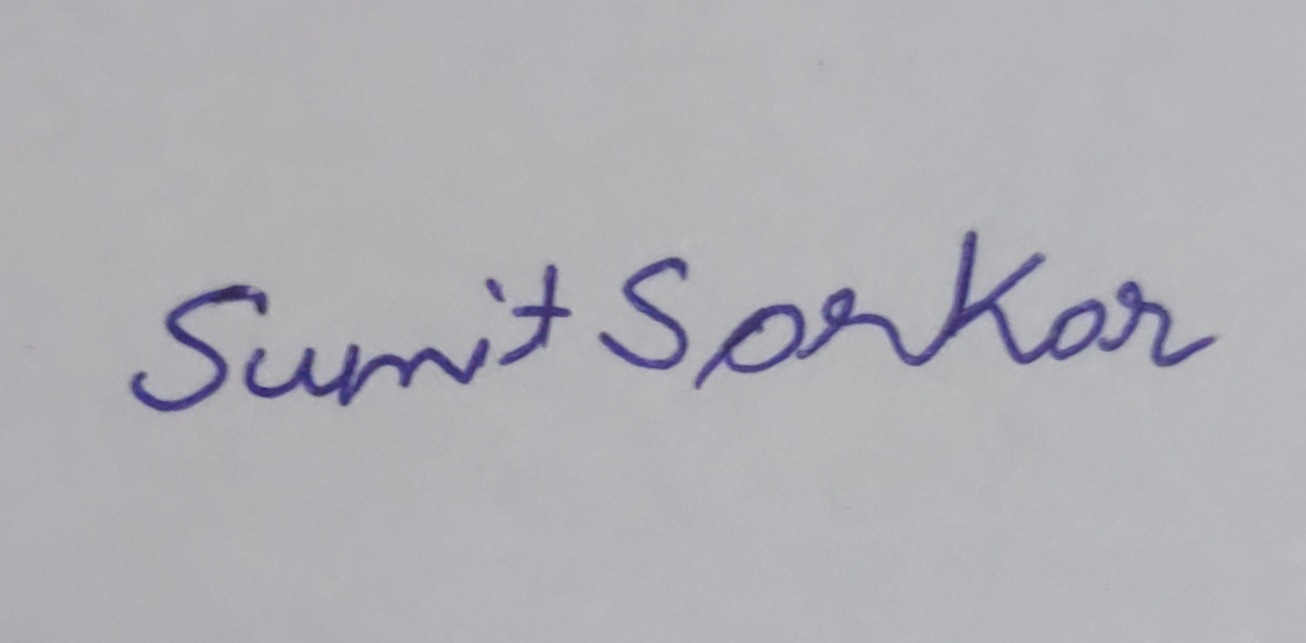 Sumit Sarkar